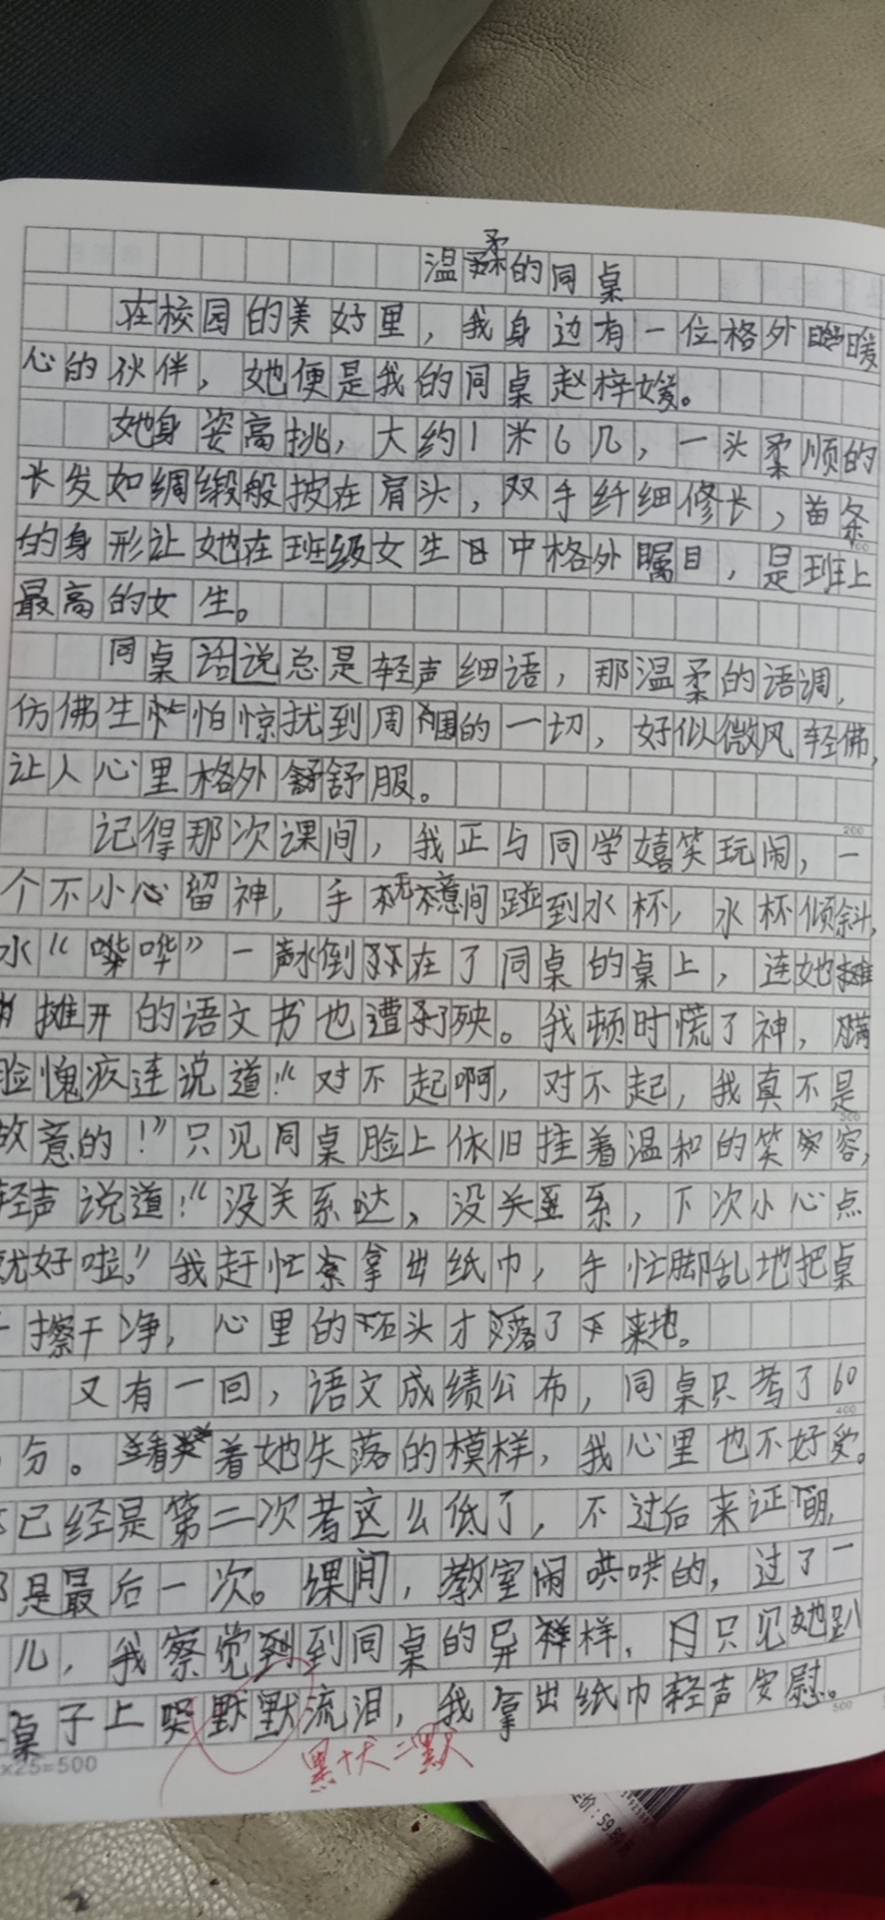 温柔的同桌
在校园的美好里，我身边有一位格外暖
心的伙伴，她便是我的同桌赵梓媛。
她身姿高挑，大约1米6几，一头柔顺的
长发如绸缎般披在肩头，双手纤细修长，苗条
的身形让她在班级女生中格外瞩目，是班上
最高的女生。
同桌话说总是轻声细语，那温柔的语调，
仿佛生怕惊扰到周围的一切，好似微风轻佛，
让人心里格外舒服。
记得那次课间，我正与同学嬉笑玩闹，一
个不小心留神，手不意间碰到水杯，水杯倾斜，
水“哗哗”一声水倒在了同桌的桌上，连她
摊开的语文书也遭了殃。我顿时慌了神，满
脸愧疚连说道：“对不起啊，对不起，我真不是
故意的！”只见同桌脸上依旧挂着温和的笑容，
轻声说道：“没关系哒，没关系，下次小心点
就好啦。”我赶忙拿出纸巾，手忙脚乱地把桌
擦干净，心里的石头才落了下来地。
又有一回，语文成绩公布，同桌只考了60
分。看着她失落的模样，我心里也不好受。
已经是第二次考这么低了，不过后来证明，
是最后一次。课间，教室闹哄哄的，过了一
儿，我察觉到同桌的异样，只见她趴
桌子上默默流泪，我拿出纸巾轻声安慰。
500
×25=500
黑+犬=默
定价：59.80